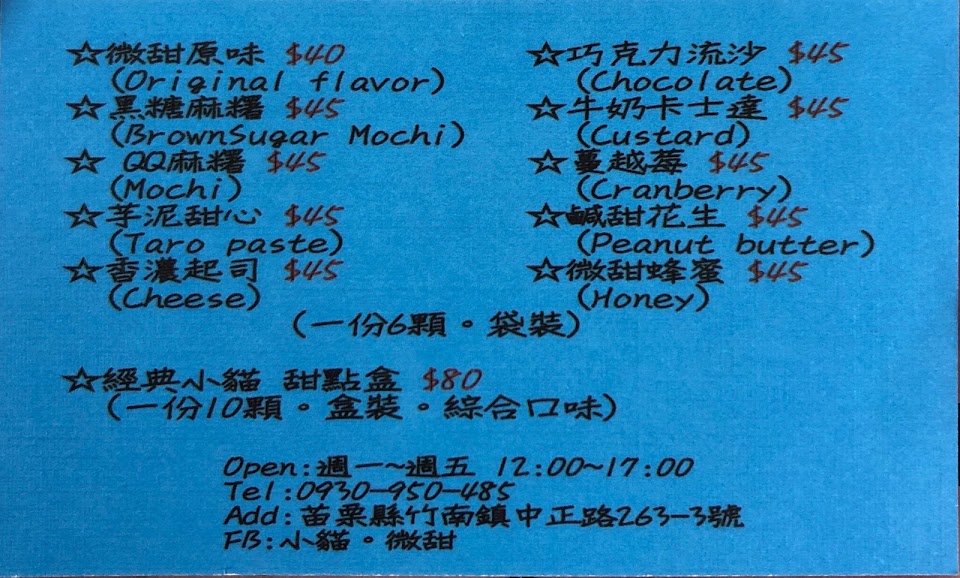 ☆微甜原味 $40
(Original flavor)
☆黑糖麻糬 $45
(BrownSugar Mochi)
☆ QQ麻糬 $45
(Mochi)
☆芋泥甜心 $45
(Taro paste)
☆香濃起司 $45
(Cheese)
☆巧克力流沙 $45
(Chocolate)
☆牛奶卡士達 $45
(Custard)
☆蔓越莓 $45
(Cranberry)
☆鹹甜花生 $45
(Peanut butter)
☆微甜蜂蜜 $45
(Honey)
(一份6顆。袋裝)
☆經典小貓 甜點盒 $80
(一份10顆。盒裝。綜合口味)
Open:週一~週五 12:00~17:00
Tel:0930-950-485
Add:苗栗縣竹南鎮中正路263-3號
FB:小貓。微甜